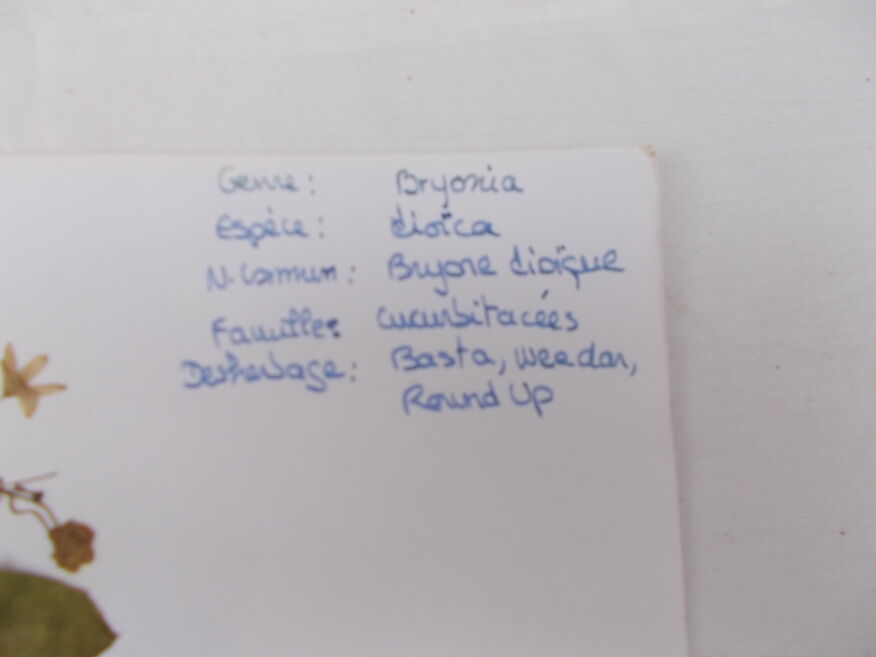 Genre : Bryonia
Espèce : dioïca
N. Commun : Bryone dioïque
Famille : Cucurbitacées
Desherbage : Basta, Weedar,
Round Up